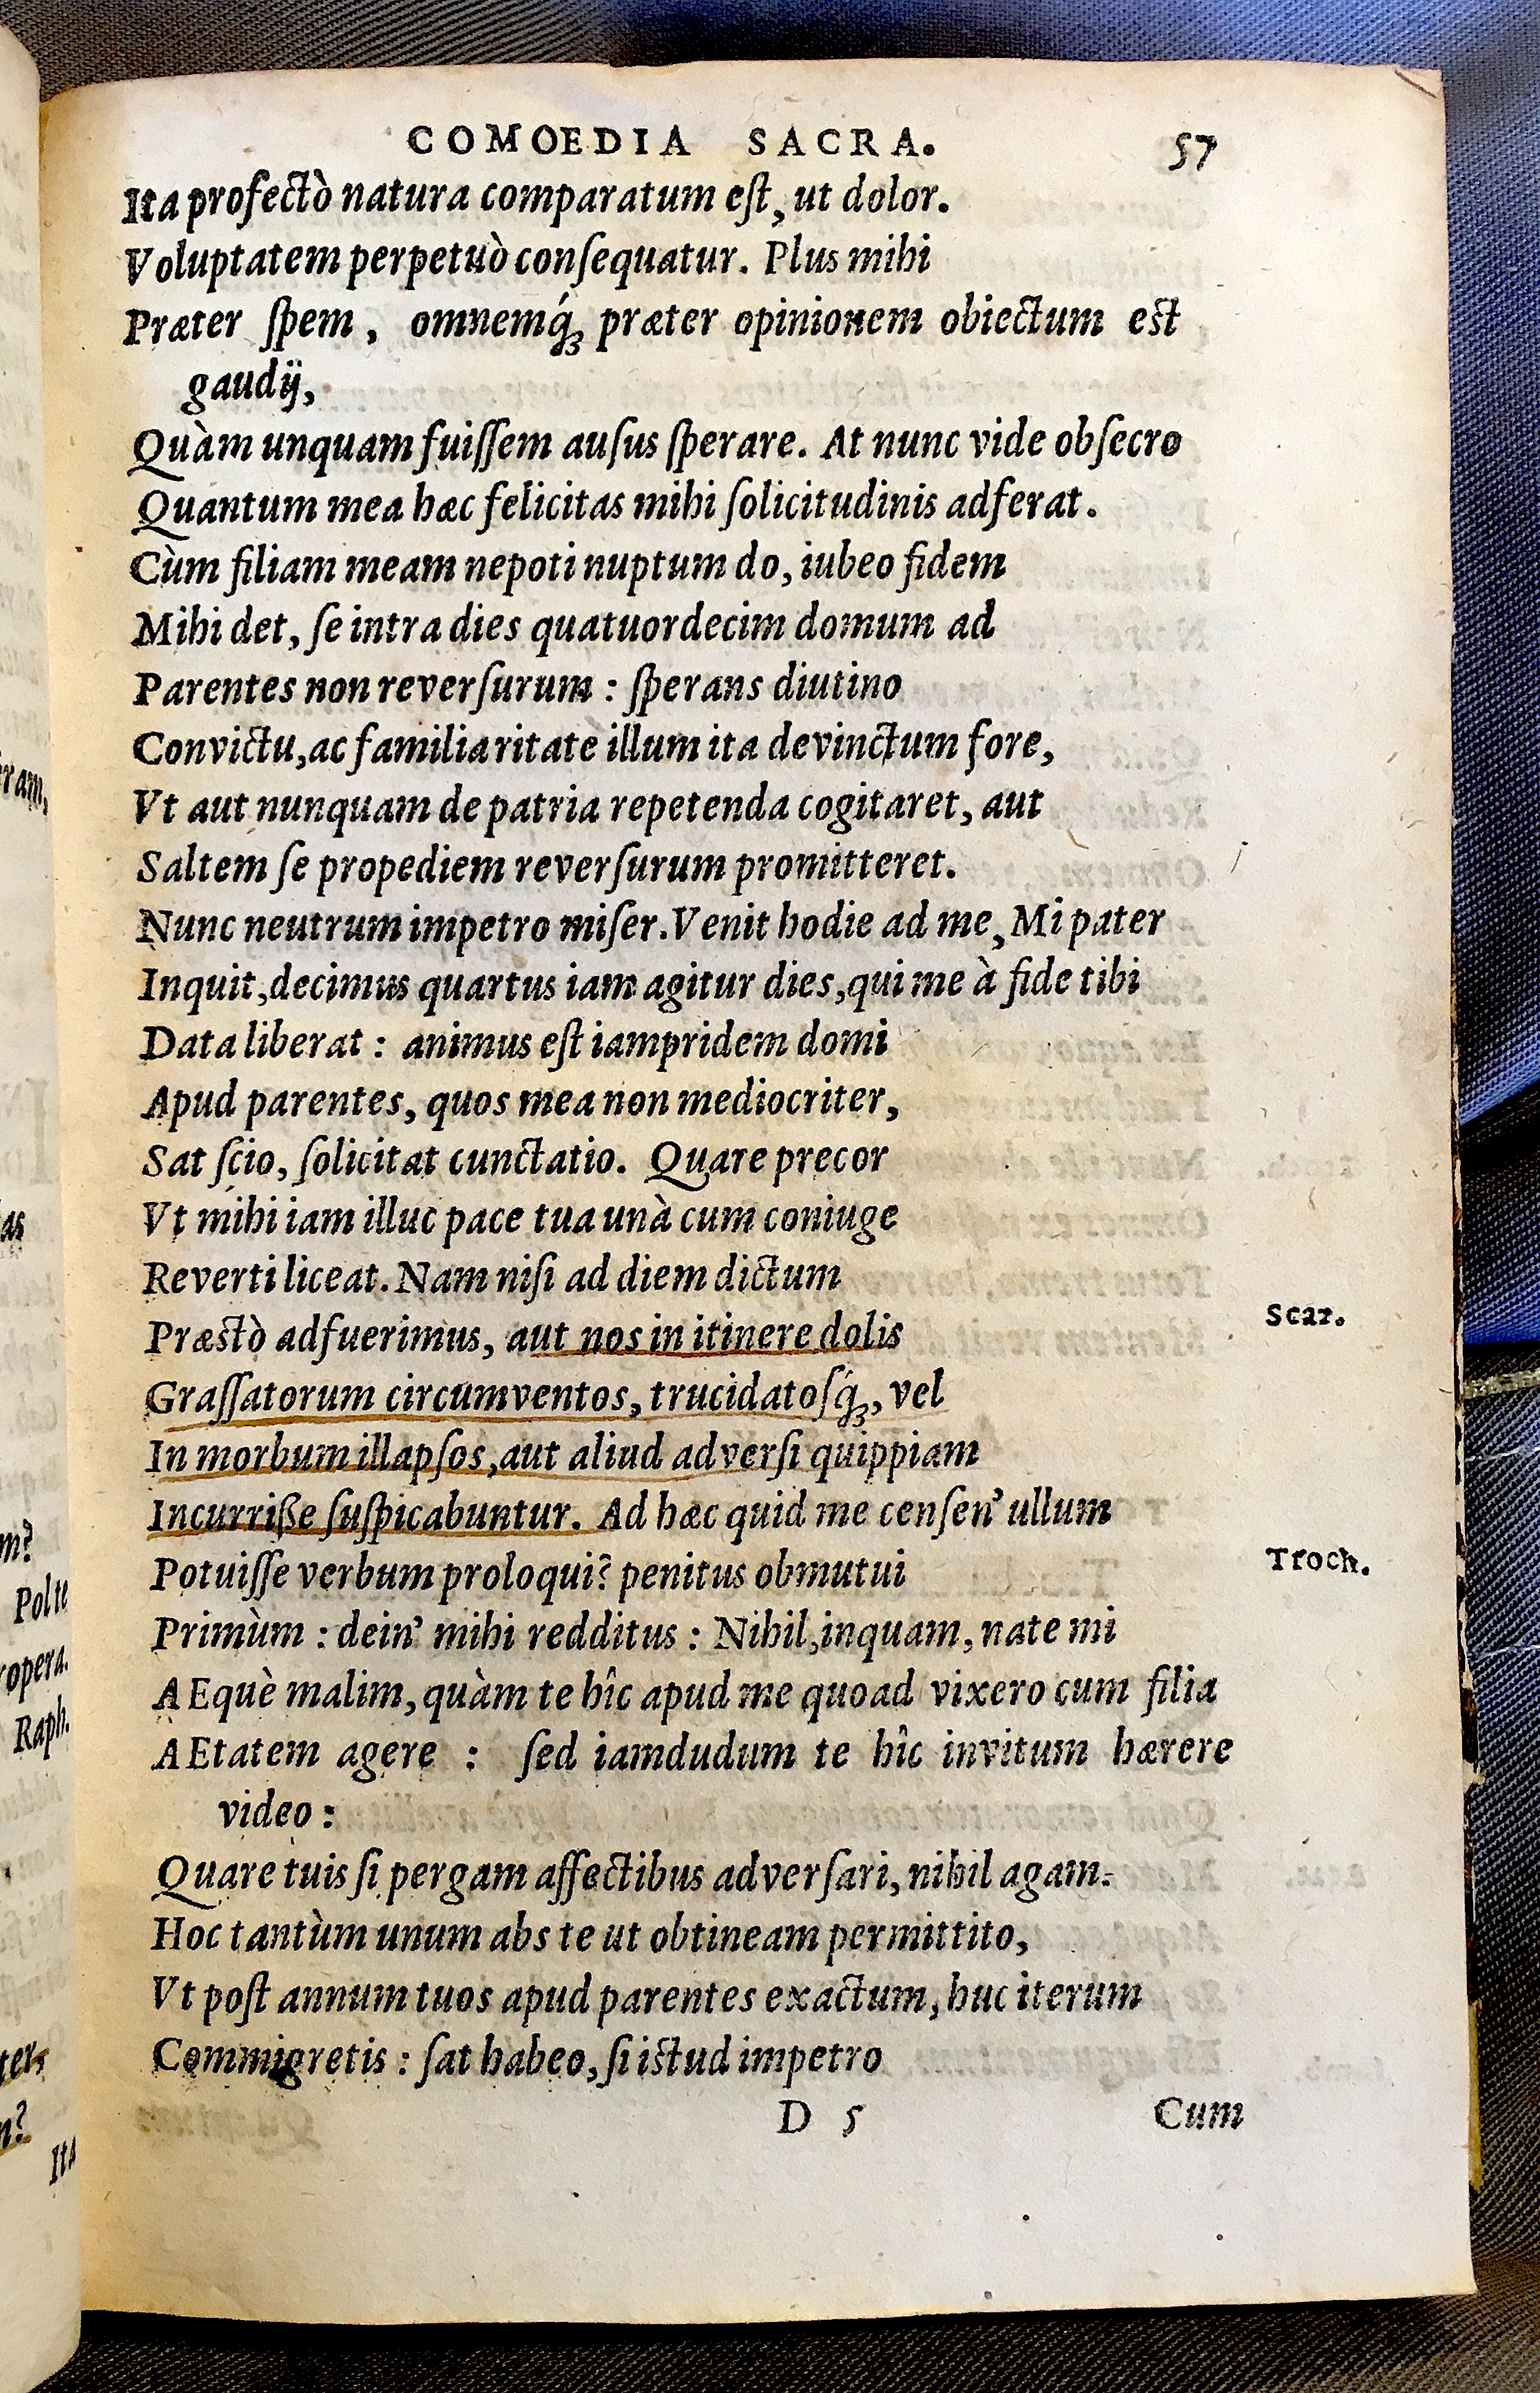 COMOEDIA SACRA. 57
Ita profectò natura comparatum eſt, ut dolor.
Voluptatem perpetuò conſequatur. Plus mihi
Præter ſpem, omnemq́ꝫ præter opinionem obiectum eſt
gaudij,
Quàm unquam fuiſſem auſus ſperare. At nunc vide obſecro
Quantum mea hæc felicitas mihi ſolicitudinis adferat.
Cùm filiam meam nepoti nuptum do, iubeo fidem
Mihi det, ſe intra dies quatuordecim domum ad
Parentes non reverſurum : ſperans diutino
Convictu, ac familiaritate illum ita devinctum fore,
Vt aut nunquam de patria repetenda cogitaret, aut
Saltem ſe propediem reverſurum promitteret.
Nunc neutrum impetro miſer. Venit hodie ad me, Mi pater
Inquit, decimus quartus iam agitur dies, qui me à fide tibi
Data liberat : animus eſt iampridem domi
Apud parentes, quos mea non mediocriter,
Sat ſcio, ſolicitat cunctatio. Quare precor
Vt mihi iam illuc pace tua unà cum coniuge
Reverti liceat. Nam niſi ad diem dictum
Præſtò adfuerimus, aut nos in itinere dolis Scaz.
Graſſatorum circumventos, trucidatoſq́ꝫ, vel
In morbum illapſos, aut aliud adverſi quippiam
Incurriße ſuſpicabuntur. Ad hæc quid me cenſen' ullum
Potuiſſe verbum proloqui? penitus obmutui Troch.
Primùm : dein' mihi redditus : Nihil, inquam, nate mi
AEquè malim, quàm te hîc apud me quoad vixero cum filia
AEtatem agere : ſed iamdudum te hîc invitum hærere
video :
Quare tuis ſi pergam affectibus adverſari, nihil agam.
Hoc tantùm unum abs te ut obtineam permittito,
Vt poſt annum tuos apud parentes exactum, huc iterum
Commigretis : ſat habeo, ſi iſtud impetro
D 5 Cum
ram,
as
m?
Pol te
opera.
Raph.
n?
Ita